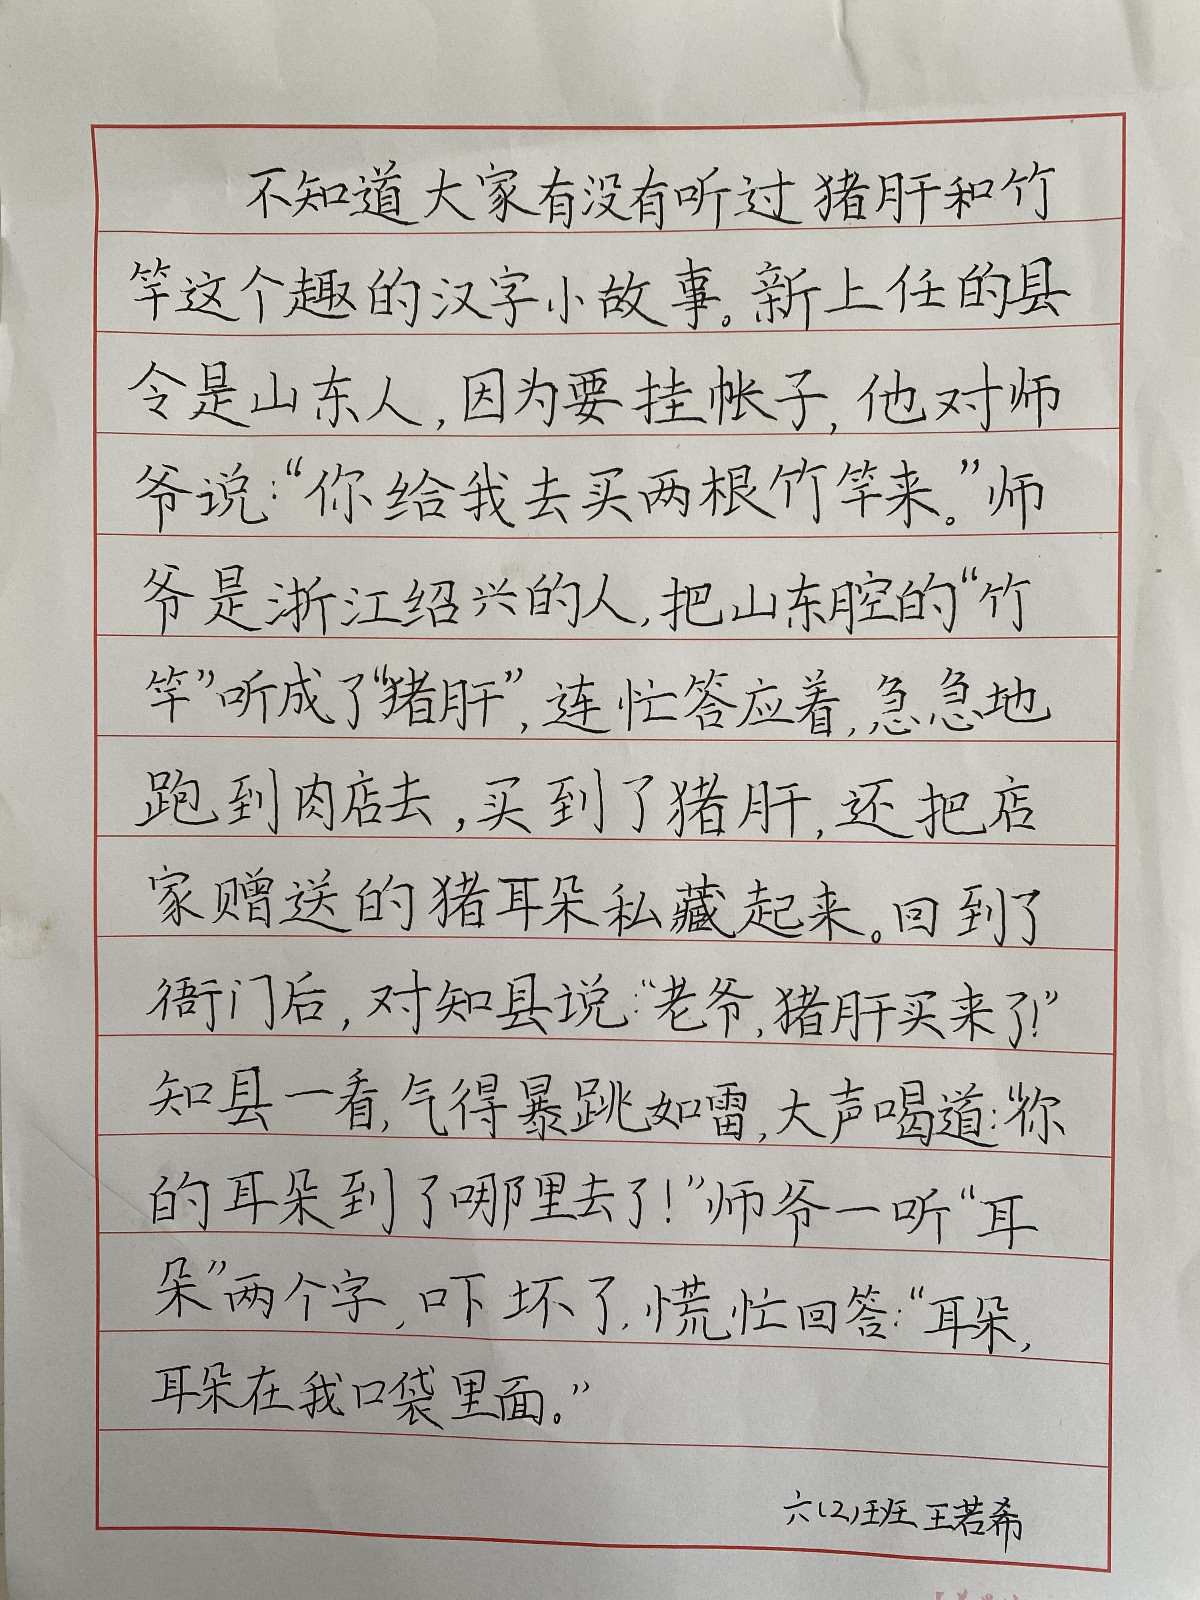 不知道大家有没有听过猪肝和竹
竿这个趣的汉字小故事。新上任的县
令是山东人，因为要挂帐子，他对师
爷说：“你给我去买两根竹竿来。”师
爷是浙江绍兴的人，把山东腔的“竹
竿”听成了“猪肝”，连忙答应着，急急地
跑到肉店去，买到了猪肝，还把店
家赠送的猪耳朵私藏起来。回到了
衙门后，对知县说：“老爷，猪肝买来了！”
知县一看，气得暴跳如雷，大声喝道：“你
的耳朵到了哪里去了！”师爷一听“耳
朵”两个字，吓坏了，慌忙回答：“耳朵，
耳朵在我口袋里面。”
六（2）班 王若希